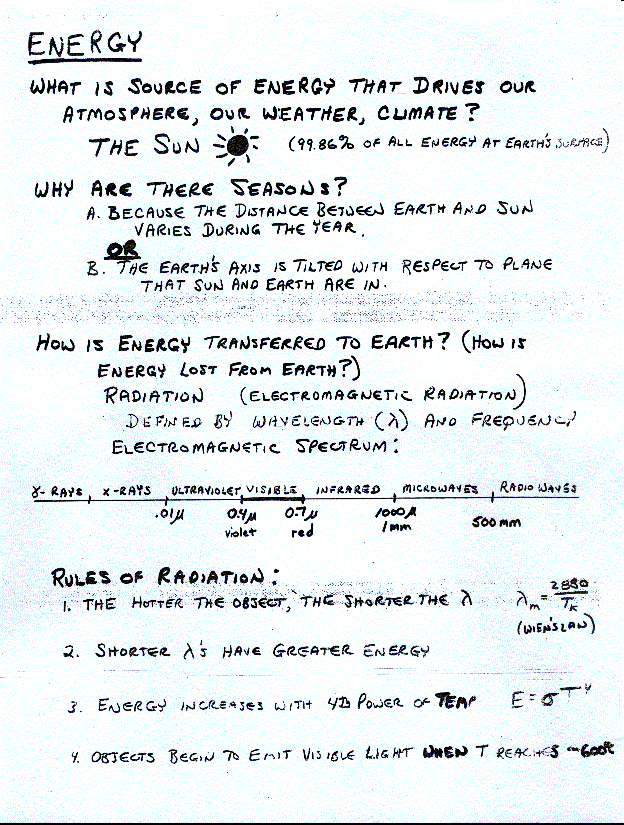 ENERGY
WHAT IS SOURCE OF ENERGY THAT DRIVES OUR
ATMOSPHERE, OUR WEATHER, CLIMATE?
THE SUN (99.86% OF ALL ENERGY AT EARTH'S SURFACE)
WHY ARE THERE SEASONS?
A. BECAUSE THE DISTANCE BETWEEN EARTH AND SUN
VARIES DURING THE YEAR.
OR
B. THE EARTH'S AXIS IS TILTED WITH RESPECT TO PLANE
THAT SUN AND EARTH ARE IN.
HOW IS ENERGY TRANSFERRED TO EARTH? (HOW IS
ENERGY LOST FROM EARTH?)
RADIATION (ELECTROMAGNETIC RADIATION)
DEFINED BY WAVELENGTH (λ) AND FREQUENCY
ELECTROMAGNETIC SPECTRUM:
γ-RAYS X-RAYS ULTRAVIOLET VISIBLE INFRARED MICROWAVES RADIO WAVES
.01μ 0.4μ 0.7μ 1000μ 500mm
violet red 1mm
RULES OF RADIATION:
1. THE HOTTER THE OBJECT, THE SHORTER THE λ λm = 2880/TK
(WIEN'S LAW)
2. SHORTER λ'S HAVE GREATER ENERGY
3. ENERGY INCREASES WITH 4th POWER OF TEMP E=σT⁴
4. OBJECTS BEGIN TO EMIT VISIBLE LIGHT WHEN T REACHES ~600°C